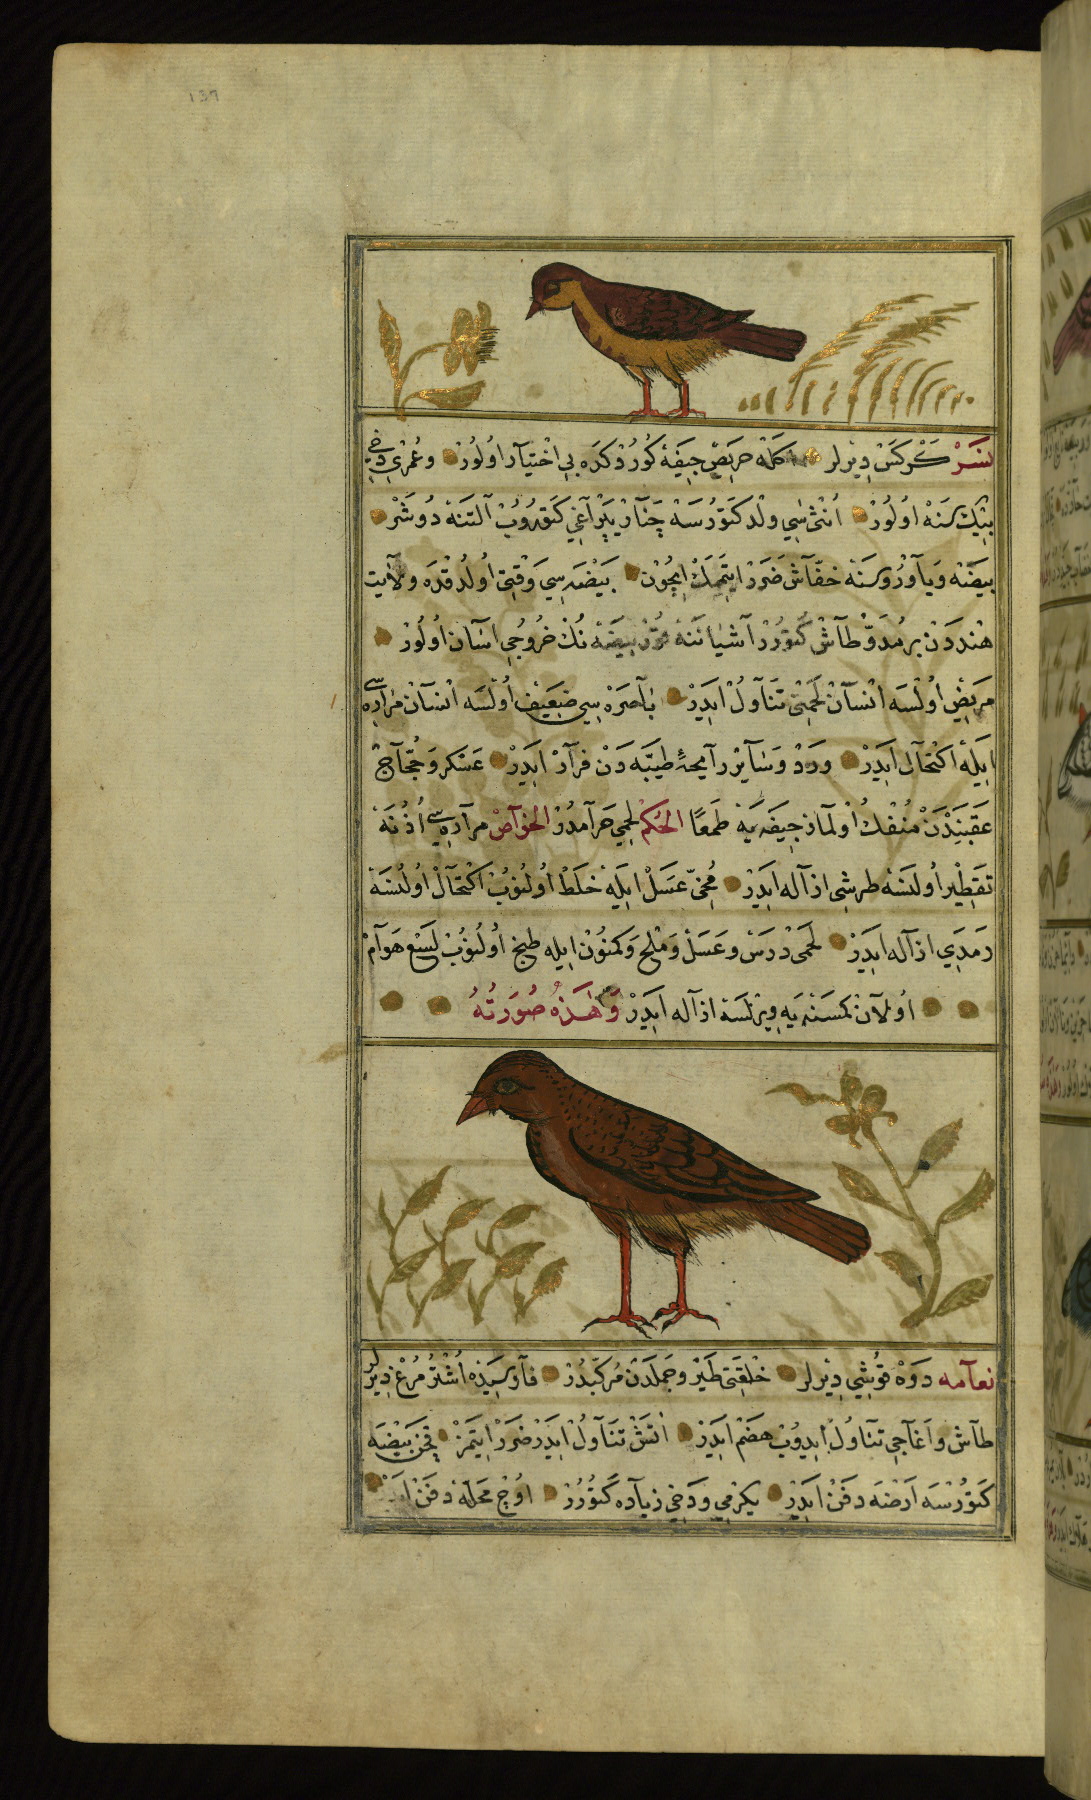 ١٣٩
نسر كركس ديرلر اكله حريص جيفه كورد كده بي اختيار اولور وعمري دخي
بيك سنه اولور انثى سي ولد كتورسه چنار يپراغي كتوروب التنه دوشر
بيضنه وياوروسنه خفاش ضرر ايتمك ايچون بيضه سي وقتى اولدقده ولايت
هنددن بر مدور طاش كتورر آشياننه قور بيضه نك خروجي اسان اولور
مريض اولسه انسان لحمنى تناول ايدر باصره سي ضعيف اولسه انسان مراره سي
ايله اكتحال ايدر ورد وساير رايحه طيبه دن فرار ايدر عسكر وحجاج
عقبندن منفك اولماز جيفه يه طمعا الحكم لحمي حرامدر الخواص مراره سي اذنه
تقطير اولنسه طرشى ازاله ايدر مخى عسل ايله خلط اولنوب اكتحال اولنسه
رمدي ازاله ايدر لحمى درس وعسل وملح وكمنون ايله طبخ اولنوب لسع هوام
اولان كمسنه يه ويرلسه ازاله ايدر وهذه صورته
نعامه دوه قوشي ديرلر خلقتى طير وجملدن مركبدر فارسيده اشتر مرغ ديرلر
طاش واغاجي تناول ايدوب هضم ايدر اتش تناول ايدر ضرر ايتمز قچن بيضه
كتورسه ارضه دفن ايدر يكرمي ودخي زياده كتورر اوچ محله دفن ايدر